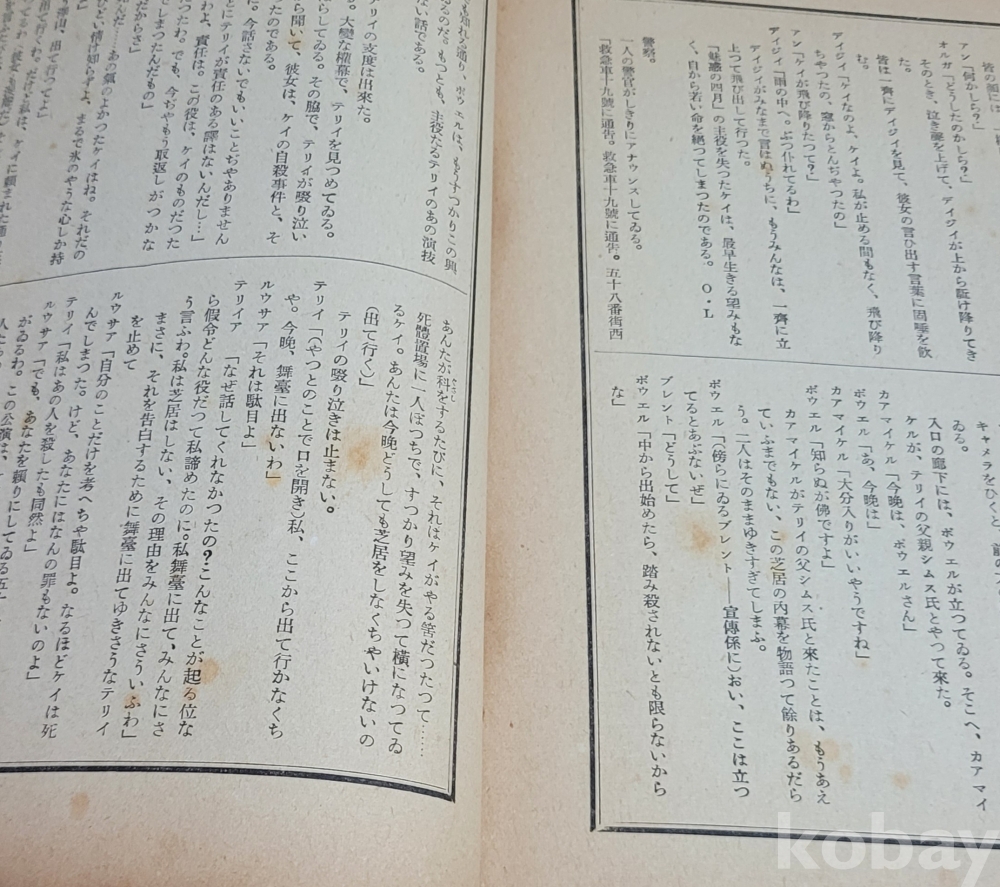 アン「何かしら?」
オルガ「どうしたのかしら?」
そのとき、泣き聲を上げて、デイジイが上から駈け降りてき
た。
皆は一齊にデイジイを見て、彼女の言ひ出す言葉に固唾を飮
む。
デイジイ「ケイなのよ、ケイ。私が止める間もなく、飛び降り
ちやつたの、窓からとんぢやつたの」
アン「ケイが飛び降りたつて?」
アイジイ「雨の中へ。ぶつ仆れてるわ」
デイジイがみなまで言はぬうちに、もうみんなは、一齊に立
上つて飛び出して行つた。
「魅惑の四月」の主役を失つたケイは、最早生きる望みもな
く、自から若い命を絕つてしまつたのである。O・L
警察。
一人の警官がしきりにアナウンスしてゐる。
「救急車十九號に通告。救急車十九號に通告。五十八番街西
キャメラをひくと、
ゐる。
入口の廊下には、ボウエルが立つてゐる。そこへ、カアマイ
ケルが、テリイの父親シムス氏とやつて來た。
カアマイケル「今晩は、ボウエルさん」
ボウエル「あ、今晩は」
カアマイケル「大分入りがいいやうですね」
ボウエル「知らぬが佛ですよ」
カアマイケルがテリイの父シムス氏と來たことは、もうあえ
ていふまでもない、この芝居の内幕を物語つて餘りあるだら
う。二人はそのままゆきすぎてしまふ。
ボウエル「(傍らにゐるブレント――宣傳係に)おい、ここは立つ
てるとあぶないぜ」
ブレント「どうして」
ボウエル「中から出始めたら、踏み殺されないとも限らないから
な」
ボウエルは、もうすつかりこの興
主役たるテリイのあの演技
ない話である。
テリイの支度は出來た。
大變な權幕で、テリイを見つめてゐる。
してゐる。その脇で、テリイが啜り泣い
開いて、彼女は、ケイの自殺事件と、そ
たのである。
に。今話さないでもいいことぢやありません
とにテリイが責任のある譯はないんだし…」
わよ、責任は。この役は、ケイのものだつた
つたわ。でも、今ぢやもう取返しがつかな
てしまつたんだもの」
だからさ」
んだ…あの氣のよかつたケイはね。それだの
ひどい情け知らずよ、まるで氷のやうな心しか持
出て行つてよ」
あんたが科をするたびに、それはケイがやる筈だつたつて……
死體置場に一人ぼつちで、すつかり望みを失つて橫になつてゐ
るケイ。あんたは今晩どうしても芝居をしなくちやいけないの
(出て行く)」
テリイの啜り泣きは止まない。
テリイ「(やつとのことで口を開き)私、ここから出て行かなくち
や。今晩、舞臺に出ないわ」
ルウサア「それは駄目よ」
テリイア「なぜ話してくれなかつたの?こんなことが起る位な
ら假令どんな役だつて私諦めたのに。私舞臺に出て、みんなにさ
う言ふわ。私は芝居はしない、その理由をみんなにさういふわ」
まさに、それを告白するために舞臺に出てゆきさうなテリイ
を止めて
ルウサア「自分のことだけを考へちや駄目よ。なるほどケイは死
んでしまつた。けど、あなたにはなんの罪もないのよ」
テリイ「私はあの人を殺したも同然よ」
ルウサア「でも、あなたを賴りにしてゐる
がゐるわ。この公演は、
kobay